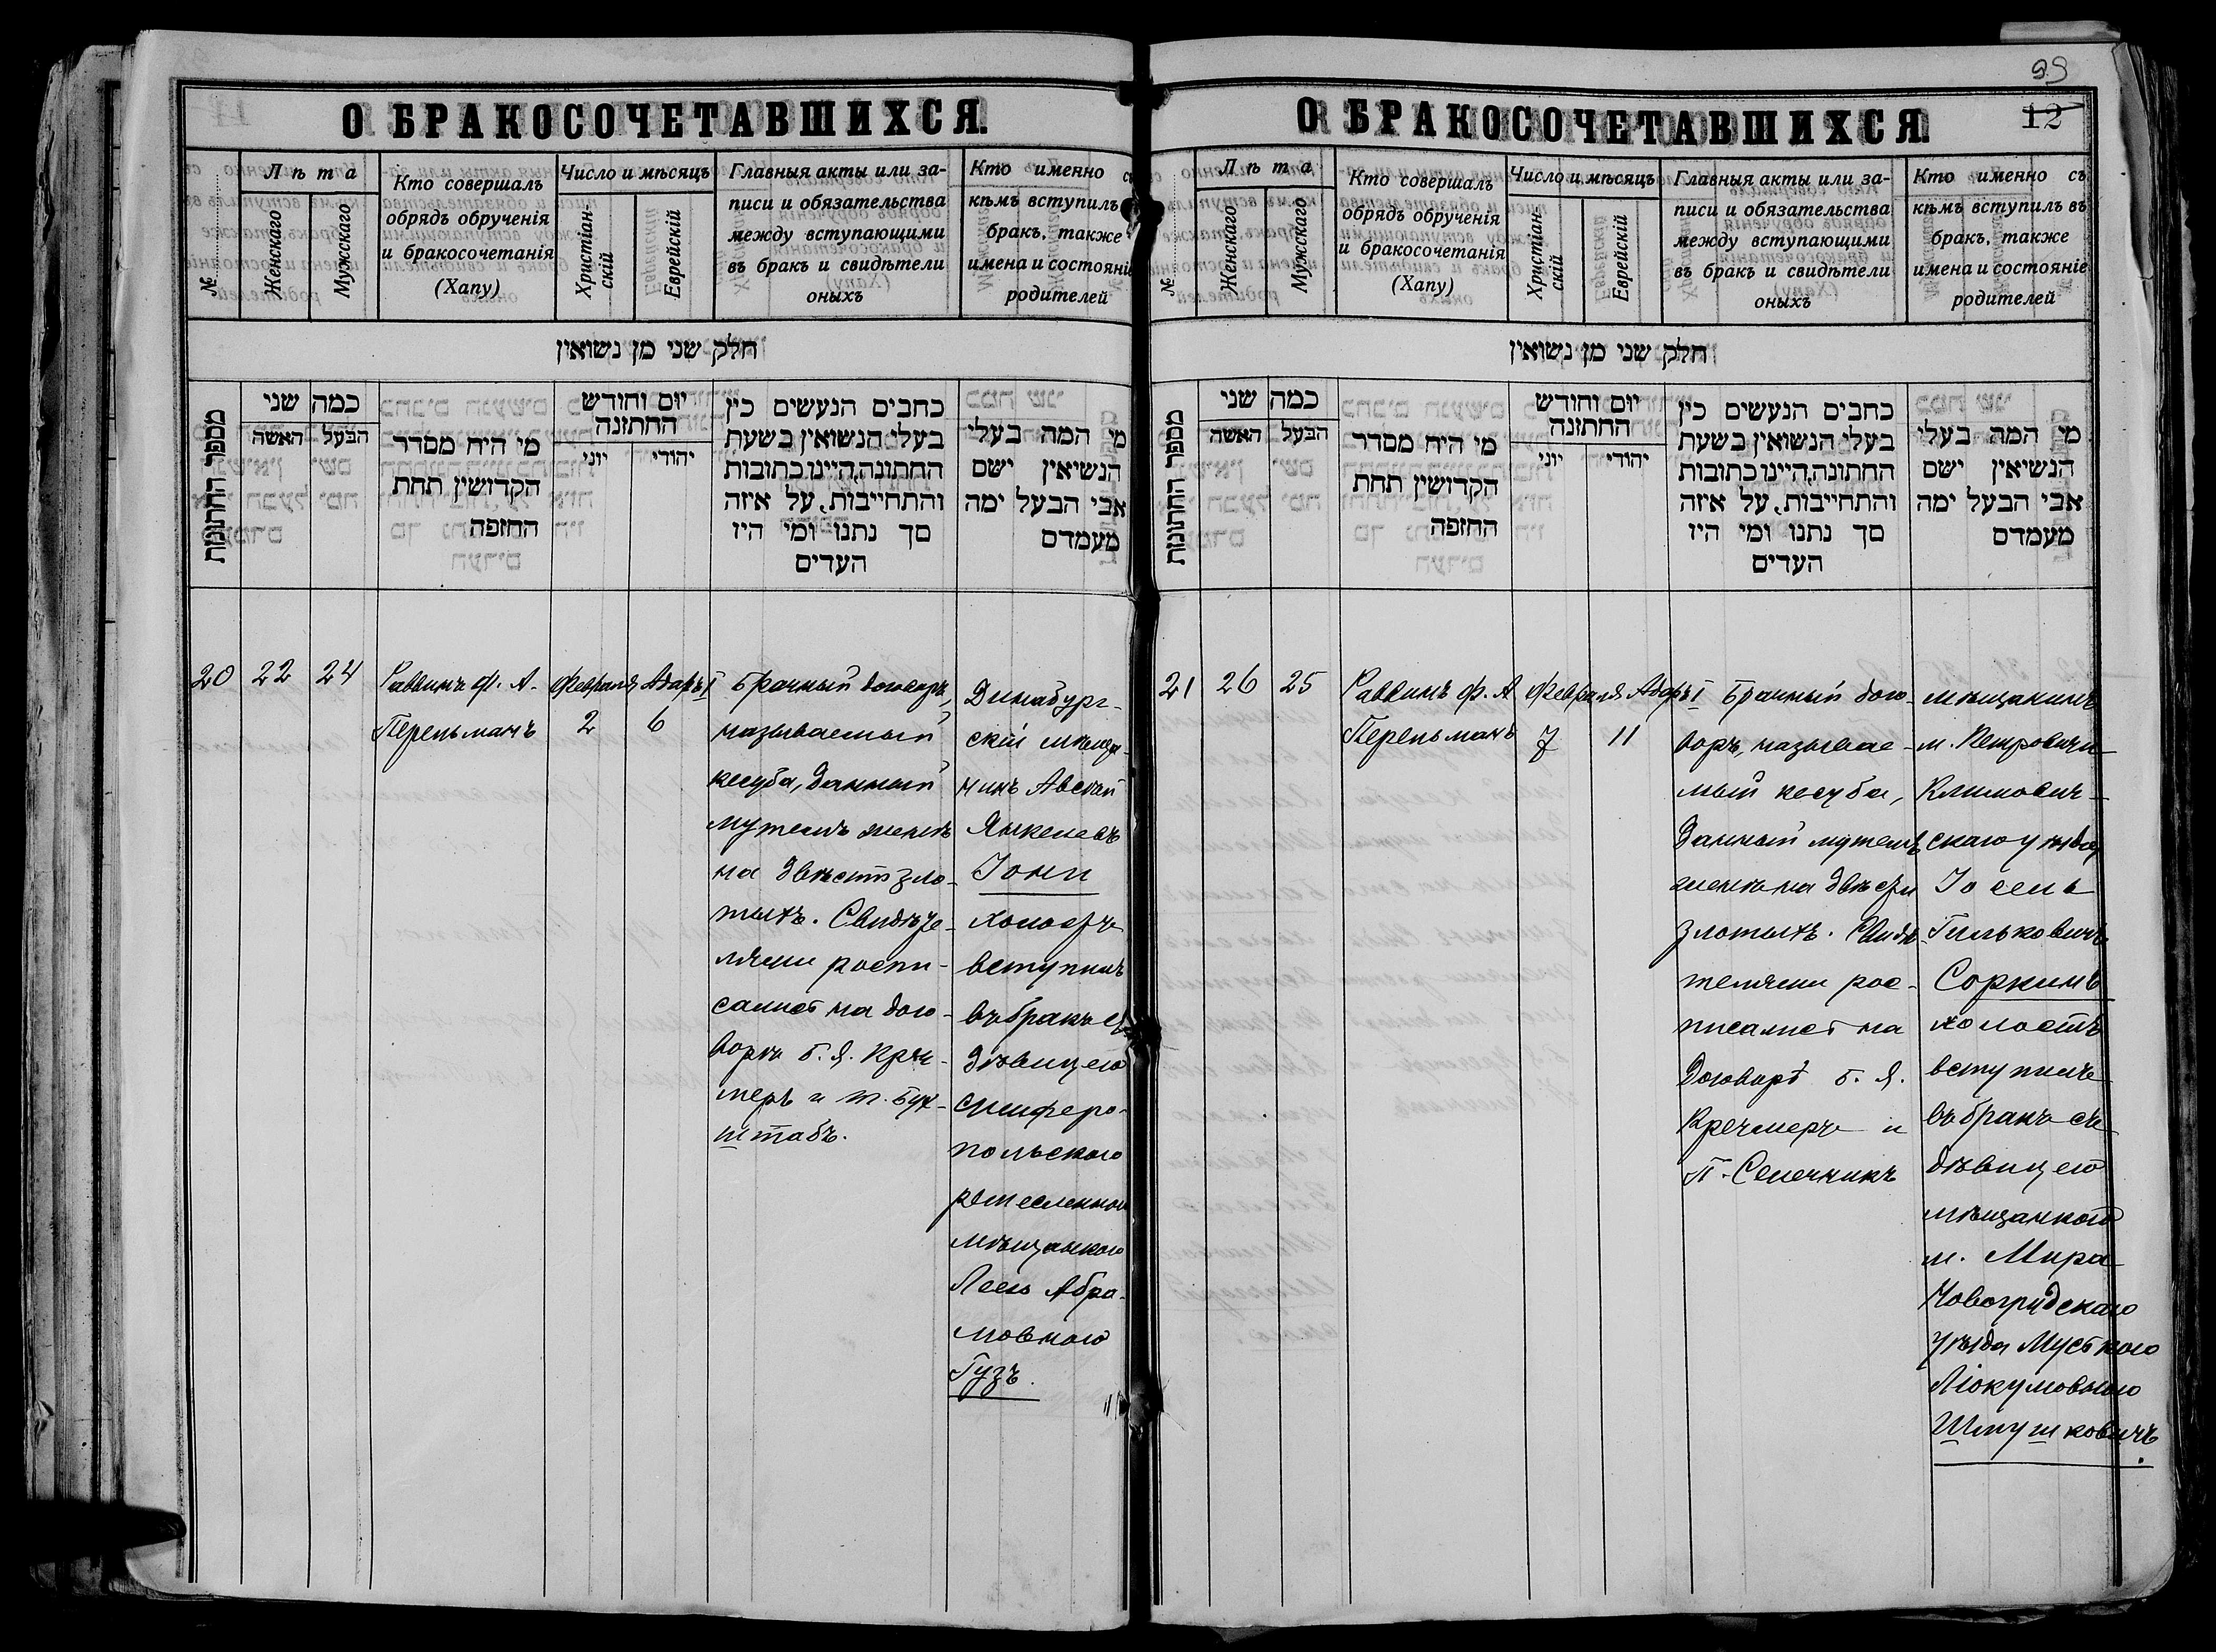 О БРАКОСОЧЕТАВШИХСЯ.
№
Лѣта
Женскаго
Мужскаго
Кто совершалъ
обрядъ обрученія
и бракосочетанія
(Хапу)
Число и мѣсяцъ
Христіан-
скій
Еврейскій
Главныя акты или за-
писи и обязательства
между вступающими
въ бракъ и свидѣтели
оныхъ
Кто именно съ
кѣмъ вступилъ
бракъ, также
имена и состояніе
родителей
חלק שני מן נשואין
מספר החתונות
כמה שני
האשה הבעל
מי היח מסדר
הקדושין תחת
החופה
יום וחודש
החתונה
יוני יהודי
כתבים הנעשים כין
בעלי הנשואין בשעת
החתונה, היינו כתובות
והתחייבות, על איזה
סך נתנו ומי היו
העדים
מי המה בעלי
הנשיאין ישם
אבי הבעל ימה
מעמדם
20
22
24
Раввинъ Ф. А.
Перельманъ
Февраля
2
Адаръ I
6
Брачный договоръ,
называемый
кесуба, данный
мужемъ женѣ
на двѣсти зло-
тыхъ. Свидѣте-
лями роспи-
сались на дого-
ворѣ Б. Я. Креч-
меръ и Т. Бух-
штабъ.
Динабург-
скій мѣща-
нинъ Авсѣй
Янкелевъ
Іоки
холостъ
вступилъ
въ бракъ съ
дѣвицею
симферо-
польскою
ремесленною
мѣщанкою
Леею Абра-
мовною
Гузъ.
О БРАКОСОЧЕТАВШИХСЯ
99
12
№
Лѣта
Женскаго
Мужскаго
Кто совершалъ
обрядъ обрученія
и бракосочетанія
(Хапу)
Число и мѣсяцъ
Христіан-
скій
Еврейскій
Главныя акты или за-
писи и обязательства
между вступающими
въ бракъ и свидѣтели
оныхъ
Кто именно съ
кѣмъ вступилъ въ
бракъ, также
имена и состояніе
родителей
חלק שני מן נשואין
מספר החתונות
כמה שני
האשה הבעל
מי היח מסדר
הקדושין תחת
החופה
יום וחודש
החתונה
יוני יהודי
כתבים הנעשים כין
בעלי הנשואין בשעת
החתונה, היינו כתובות
והתחייבות, על איזה
סך נתנו ומי היו
העדים
מי המה בעלי
הנשיאין ישם
אבי הבעל ימה
מעמדם
21
26
25
Раввинъ Ф. А
Перельманъ
Февраля
7
Адаръ I
11
Брачный дого-
воръ, называе-
мый кесуба,
данный мужемъ
женѣ на двѣсти
злотыхъ. Свидѣ-
телями рос-
писались на
договорѣ Б. Я.
Кречмеръ и
П. Семечникъ
мѣщанинъ
м. Петровичи
Климович-
скаго уѣзда
Іосель
Гильковичъ
Соркинъ
холостъ
вступилъ
въ бракъ съ
дѣвицею
мѣщанкою
м. Мира
Новогрудскаго
уѣзда Мусею
Шмушковичъ.